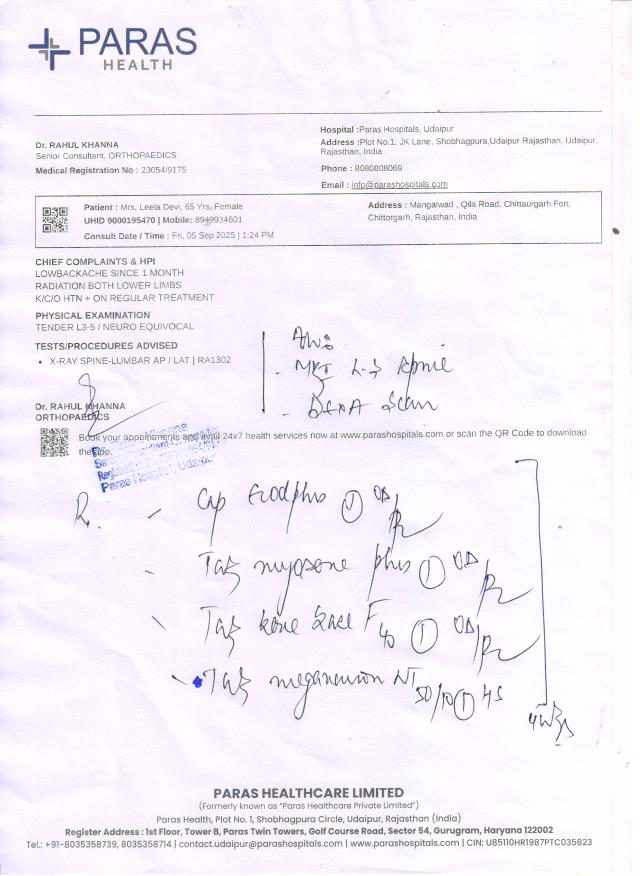 PARAS
HEALTH
Dr. RAHUL KHANNA
Senior Consultant, ORTHOPAEDICS
Medical Registration No : 23054/9175
Hospital :Paras Hospitals, Udaipur
Address :Plot No.1, JK Lane, Shobhagpura,Udaipur Rajasthan, Udaipur,
Rajasthan, India
Phone : 8080808069
Email : info@parashospitals.com
Patient : Mrs. Leela Devi, 65 Yrs, Female
UHID 9000195470 | Mobile: 8949934601
Consult Date / Time : Fri, 05 Sep 2025 | 1:24 PM
Address : Mangalwad , Qila Road, Chittaurgarh Fort,
Chittorgarh, Rajasthan, India
CHIEF COMPLAINTS & HPI
LOWBACKACHE SINCE 1 MONTH
RADIATION BOTH LOWER LIMBS
K/C/O HTN + ON REGULAR TREATMENT
PHYSICAL EXAMINATION
TENDER L3-5 / NEURO EQUIVOCAL
TESTS/PROCEDURES ADVISED
• X-RAY SPINE-LUMBAR AP / LAT | RA1302
- MRI L-S Spine
- DEXA Scan
Dr. RAHUL KHANNA
ORTHOPAEDICS
Book your appointments and avail 24x7 health services now at www.parashospitals.com or scan the QR Code to download
the app.
Paras Hospital, Udaipur
R.
- Cap 1 OD
- Tab myosone plus 1 OD
- Tab F 40 1 OD
- Tab meganeuron NT 50/10 1 HS
PARAS HEALTHCARE LIMITED
(Formerly known as "Paras Healthcare Private Limited")
Paras Health, Plot No. 1, Shobhagpura Circle, Udaipur, Rajasthan (India)
Register Address : 1st Floor, Tower B, Paras Twin Towers, Golf Course Road, Sector 54, Gurugram, Haryana 122002
Tel.: +91-8035358739, 8035358714 | contact.udaipur@parashospitals.com | www.parashospitals.com | CIN: U85110HR1987PTC035823